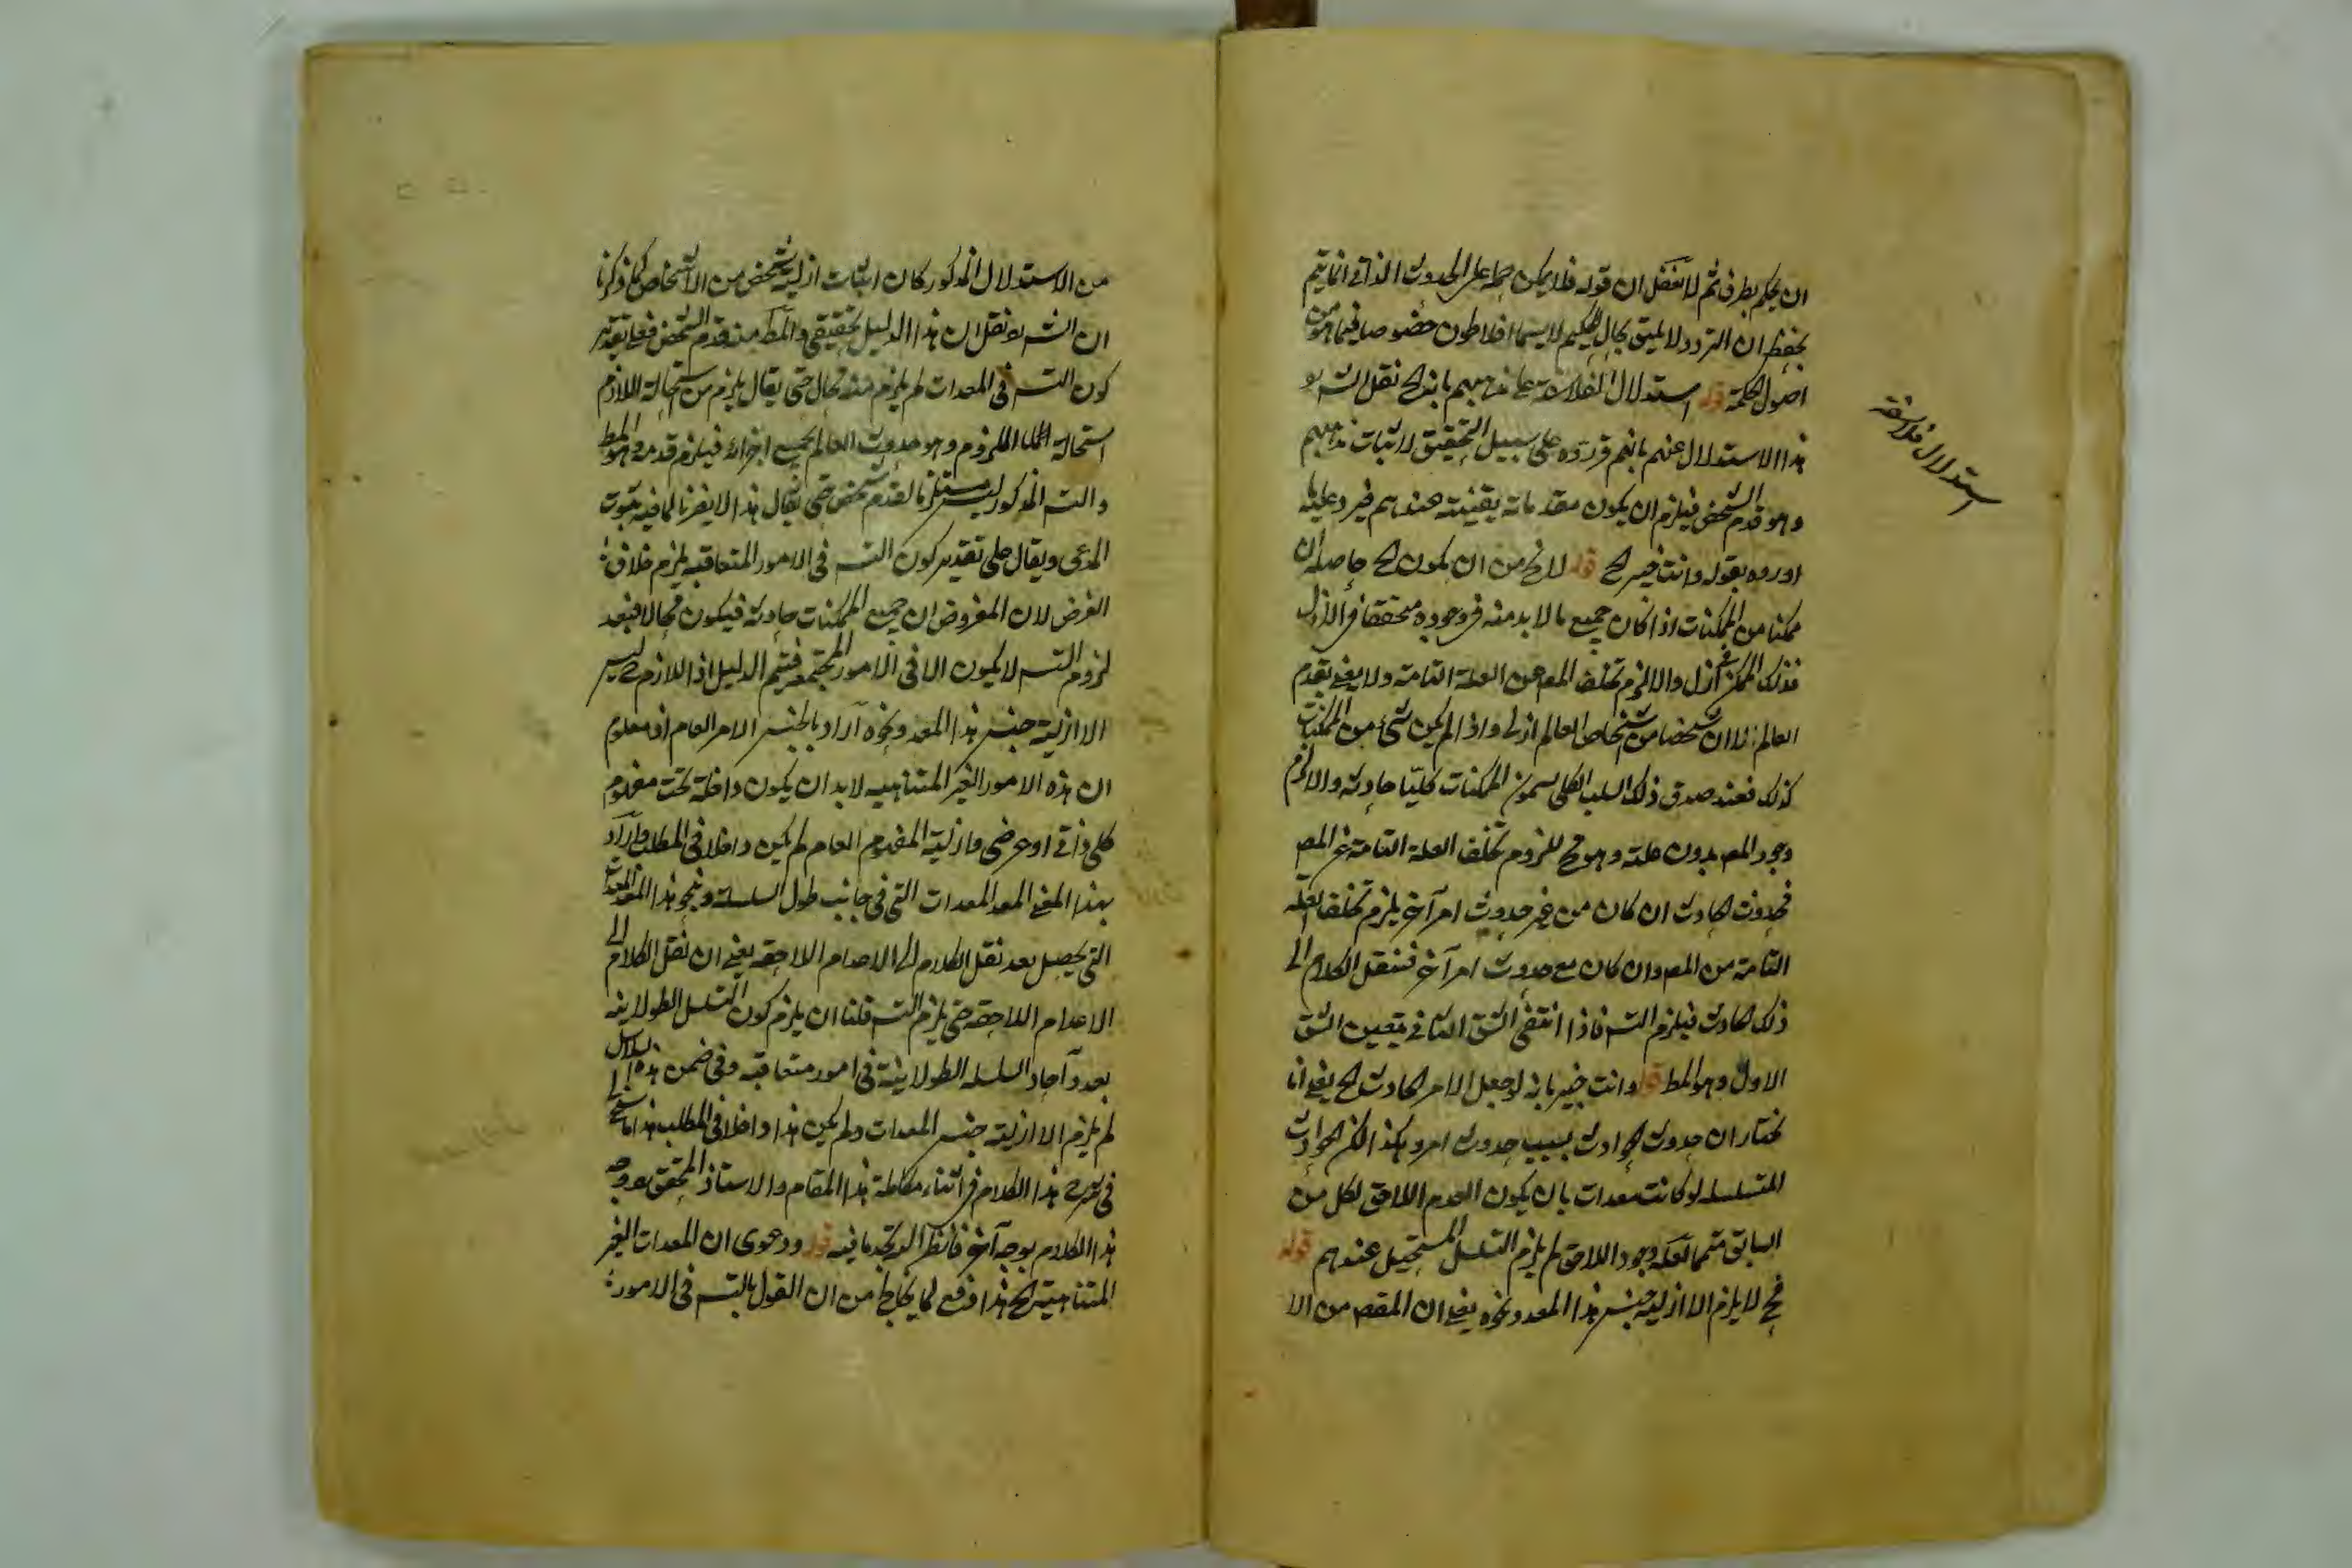 ان يحكم بطرف ثم لا تغفل ان قوله فلا يمكن حمله على الحدوث الذاتى انما يتم
ان التردد لا يليق بحال الحكيم لا سيما افلاطون خصوصا فيما هو من
اصول الحكمة قوله استدلال الفلاسفة على مذهبهم بانه الخ نقل الشه
هذا الاستدلال عنهم بانهم قرروه على سبيل التحقيق لاثبات مذهبهم
وهو قدم الشخص فيلزم ان يكون مقدماته يقينية عندهم فيرد عليه ما
اورده بقوله وانت خبير الخ قوله لا يخ من ان يكون الخ حاصله ان
ممكنا من الممكنات اذا كان جميع ما لابد منه فى وجوده متحققا فى الازل
فذلك الممكن ازلى والا لزم تخلف المعـ عن العلة التامة ولا يعنى بقدم
العالم الا ان شخصا من اشخاص العالم ازلى واذا لم يكن شئ من الممكنات
كذلك فعند صدق ذلك السلب الكلى الممكنات كليا حادثة والا لزم
وجود المعـ بدون علته وهو مح للزوم تخلف العلة التامة عن المعـ
فحدوث الحادث ان كان من غير حدوث امر آخر يلزم تخلف العلة
التامة من المعـ وان كان مع حدوث امر آخر فننقل الكلام الى
ذلك الحادث فيلزم التسـ فاذا انتفى الشق الثانى يتعين الشق
الاول وهو المط قوله وانت خبير بانه لو جعل الامر الحادث الخ يعنى انا
نختار ان حدوث الحوادث بسبب حدوث امر وهكذا لكن الحوادث
المتسلسله لو كانت معدات بان يكون العدم اللاحق لكل من
السابق متمما لعلة وجود اللاحق لم يلزم التسلسل المستحيل عندهم قوله
فح لا يلزم الا ازلية جنس هذا المعد ونحوه يعنى ان المقصـ من الا
استدلال فلاسفة
من الاستدلال المذكور كان اثبات ازلية شخص من الاشخاص كما ذكرنا
ان الشه نقل ان هذا الدليل تحقيقى والمط منه قدم الشخص فعلى تقدير
كون التسـ فى المعدات لم يلزم منه محال حتى يقال يلزم من استحالة اللازم
استحالة الملزوم وهو حدوث العالم بجميع اجزائه فيلزم قدمه وهو المط
والتسـ المذكور ليس مستلزما لقدم شخص حتى يقال هذا لا يضرنا لما فيه ثبوت
المدعى ويقال على تقدير كون التسـ فى الامور المتعاقبه يلزم خلاف
الفرض لان المفروض ان جميع الممكنات حادثة فيكون محالا فبعد
لزوم التسـ لا يكون الا فى الامور المجتمعة فيتم الدليل اذ اللازم ح ليس
الا ازلية جنس هذا المعد ونحوه اراد بالجنس الامر العام اذ معلوم
ان هذه الامور الغير المتناهيه لابد ان يكون داخلة تحت مفهوم
كلى ذاتى او عرضى وازلية المفهوم العام لم يكن داخلا فى المطلب واراد
بهذا المعنى المعد المعدات التى فى جانب طول السلسلة وبنحو هذا المعد المعدات
التى يحصل بعد نقل الكلام الى الاعدام اللاحقة يعنى ان نقل الكلام الى
الاعدام اللاحقة حتى يلزم التسـ قلنا ان يلزم كون التسلسل الطولانية
بعدد آحاد السلسله الطولانية فى امور متعاقبه وفى ضمن هذه السلاسل
لم يلزم الا ازلية جنس المعدات ولم يكن هذا داخلا فى المطلب هذا ما سنح لى
فى شرح هذا الكلام فى اثناء مطالعة هذا المقام والاستاذ المحقق وجه
هذا الكلام بوجه آخر فانظر اليه تجد ما فيه قوله ودعوى ان المعدات الغير
المتناهية الخ هذا دفع لما يخاطر من ان القول بالتسـ فى الامور